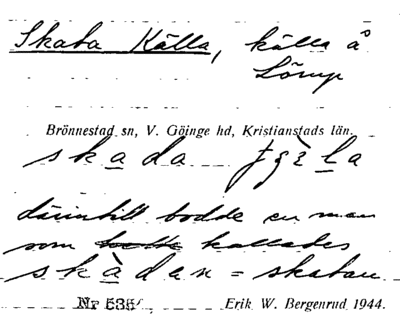 Skata Källa, källa å
Lörup
Brönnestad sn, V. Göinge hd, Kristianstads län.
skada
därintill bodde en man
som kallades
skàdan = skatan
Nr 535
Erik W. Bergenrud 1944.